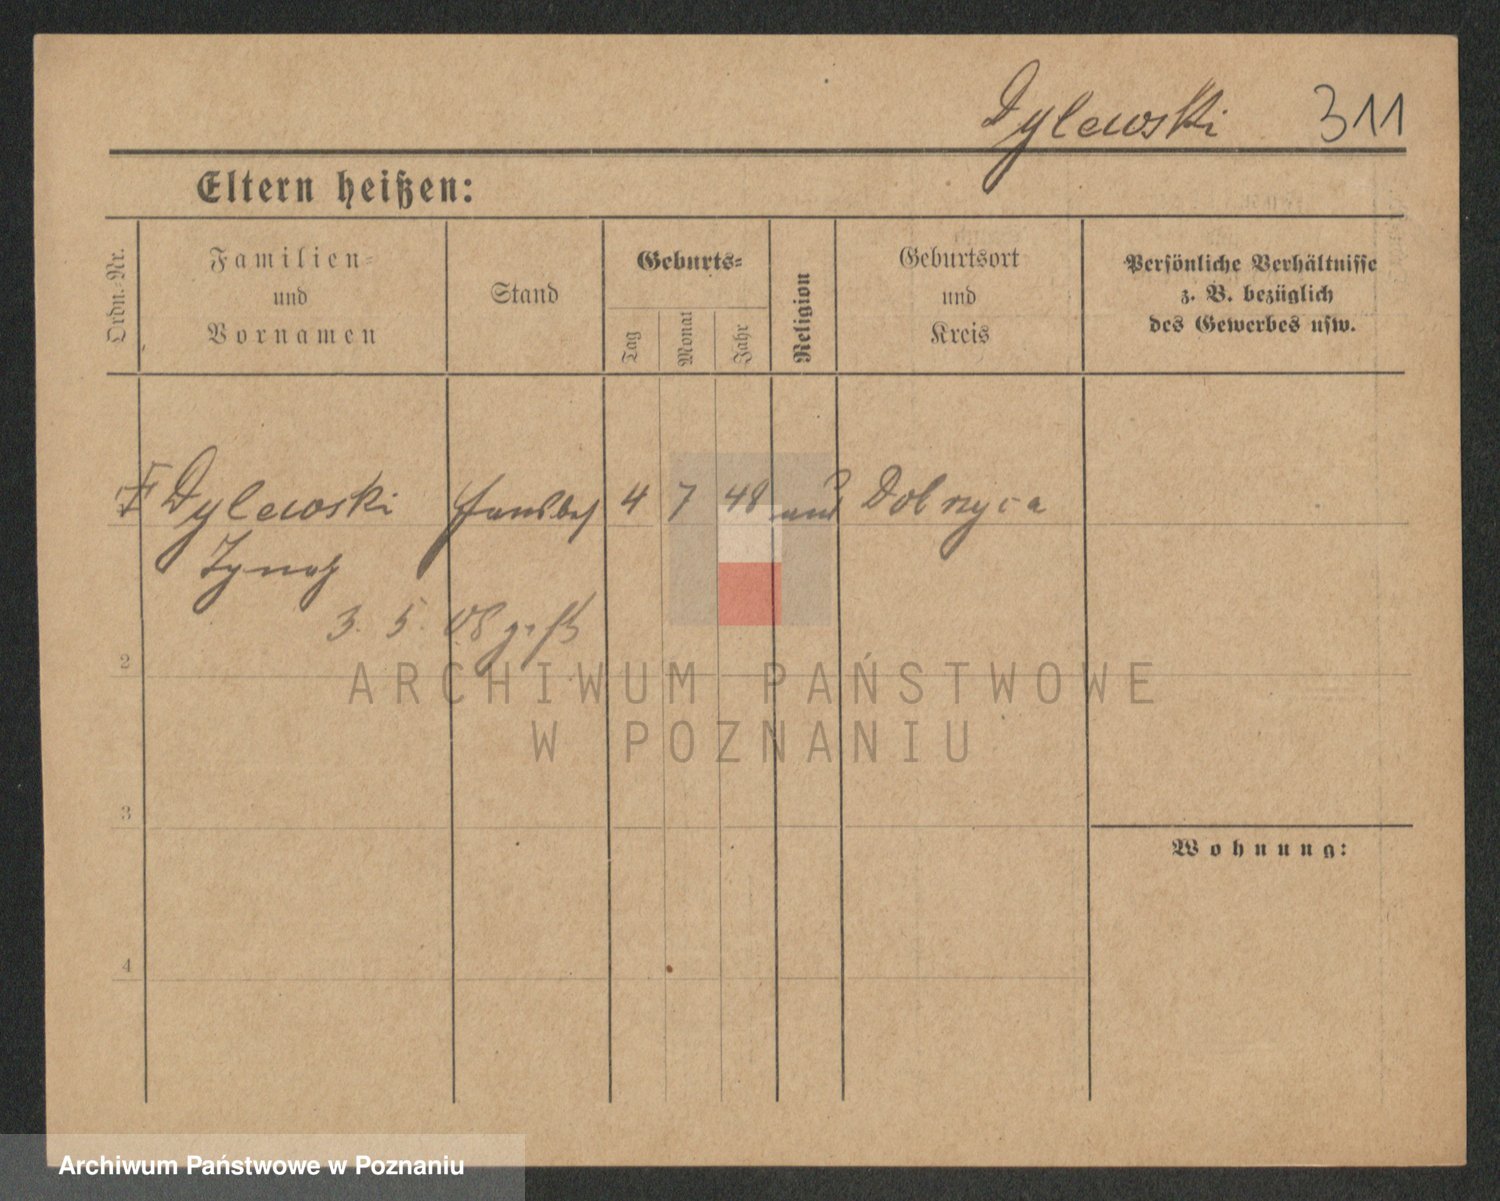 Dylewski 311
Eltern heißen:
Ordn.-Nr.
Familien-
und
Vornamen
Stand
Geburts-
Tag
Monat
Jahr
Religion
Geburtsort
und
Kreis
Persönliche Verhältnisse
z. B. bezüglich
des Gewerbes usw.
Dylewski 4 7 48 Dobrzyca
Ignatz
3. 5. 08
2
ARCHIWUM PAŃSTWOWE
W POZNANIU
3
Wohnung:
4
Archiwum Państwowe w Poznaniu